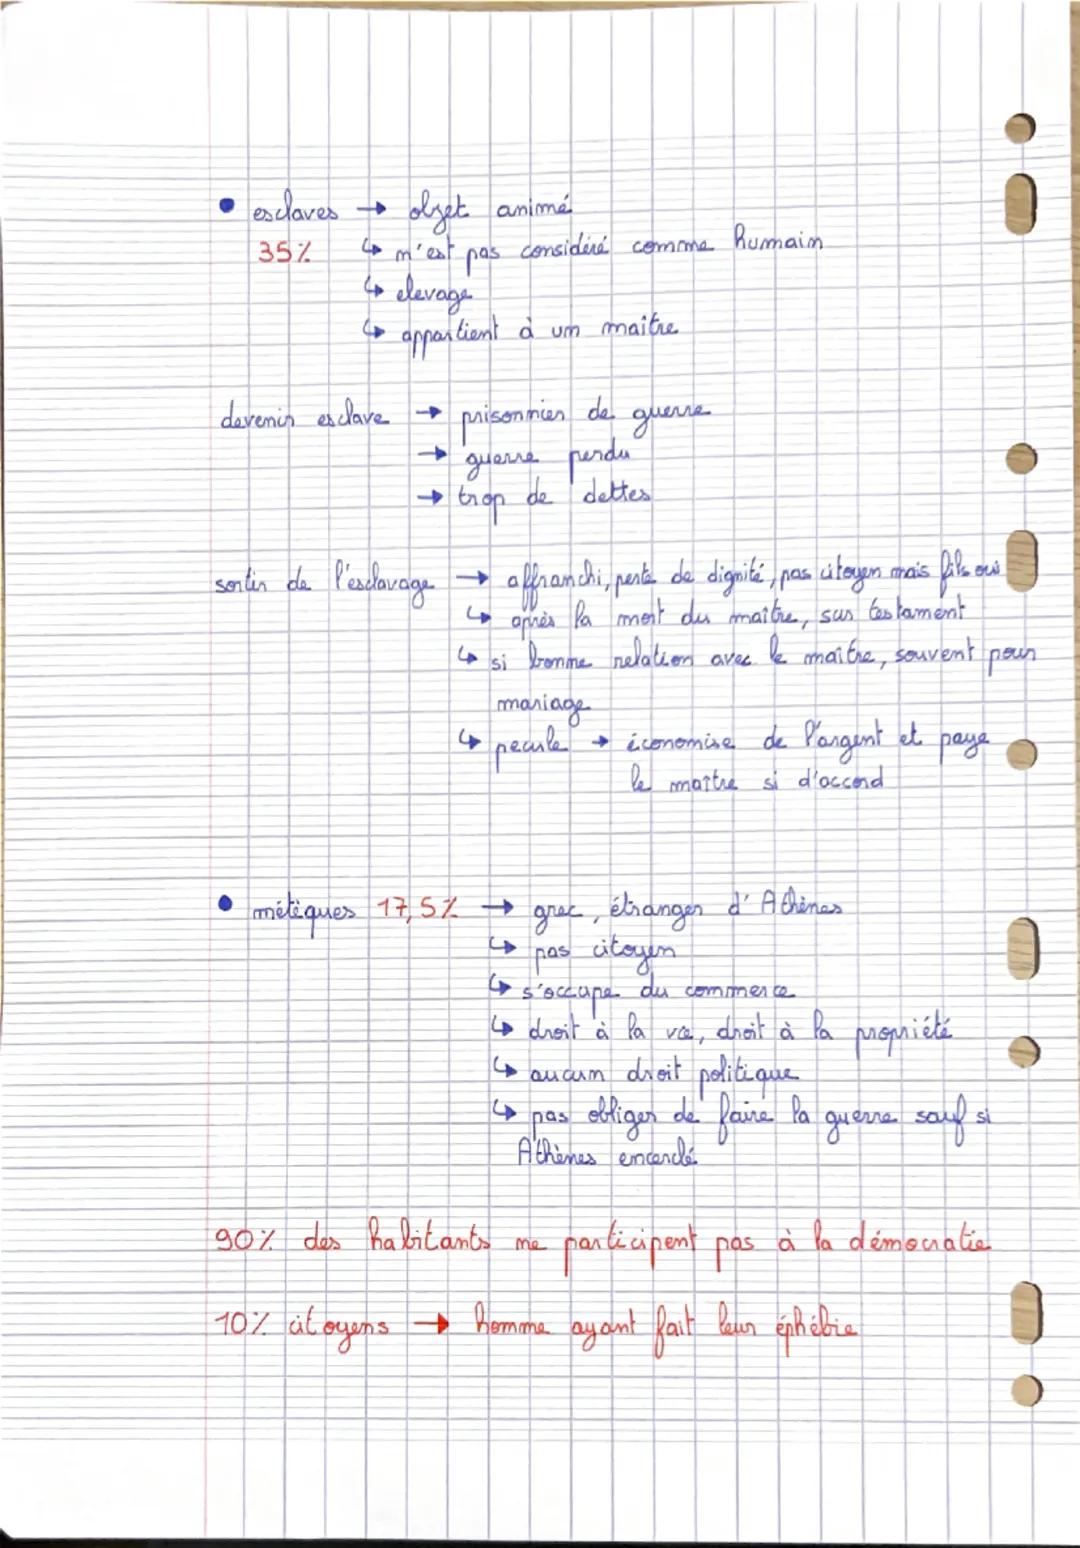 • esclaves → objet animé
35% ↳ n'est pas considéré comme humain
↳ elevage
↳ appartient à un maître
devenir esclave → prisonnier de guerre
→ guerre perdu
→ trop de dettes
sortir de l'esclavage → affranchi, perte de dignité, pas citoyen mais fils oui
↳ après la mort du maître, sur testament
↳ si bonne relation avec le maître, souvent pour
mariage
↳ pecule → économise de l'argent et paye
le maître si d'accord
• métèques 17,5% → grec, étranger d'Athènes
↳ pas citoyen
↳ s'occupe du commerce
↳ droit à la vie, droit à la propriété
↳ aucun droit politique
↳ pas obliger de faire la guerre sauf si
Athènes encerclé
90% des habitants ne participent pas à la démocratie
10% citoyens → homme ayant fait leur éphébie